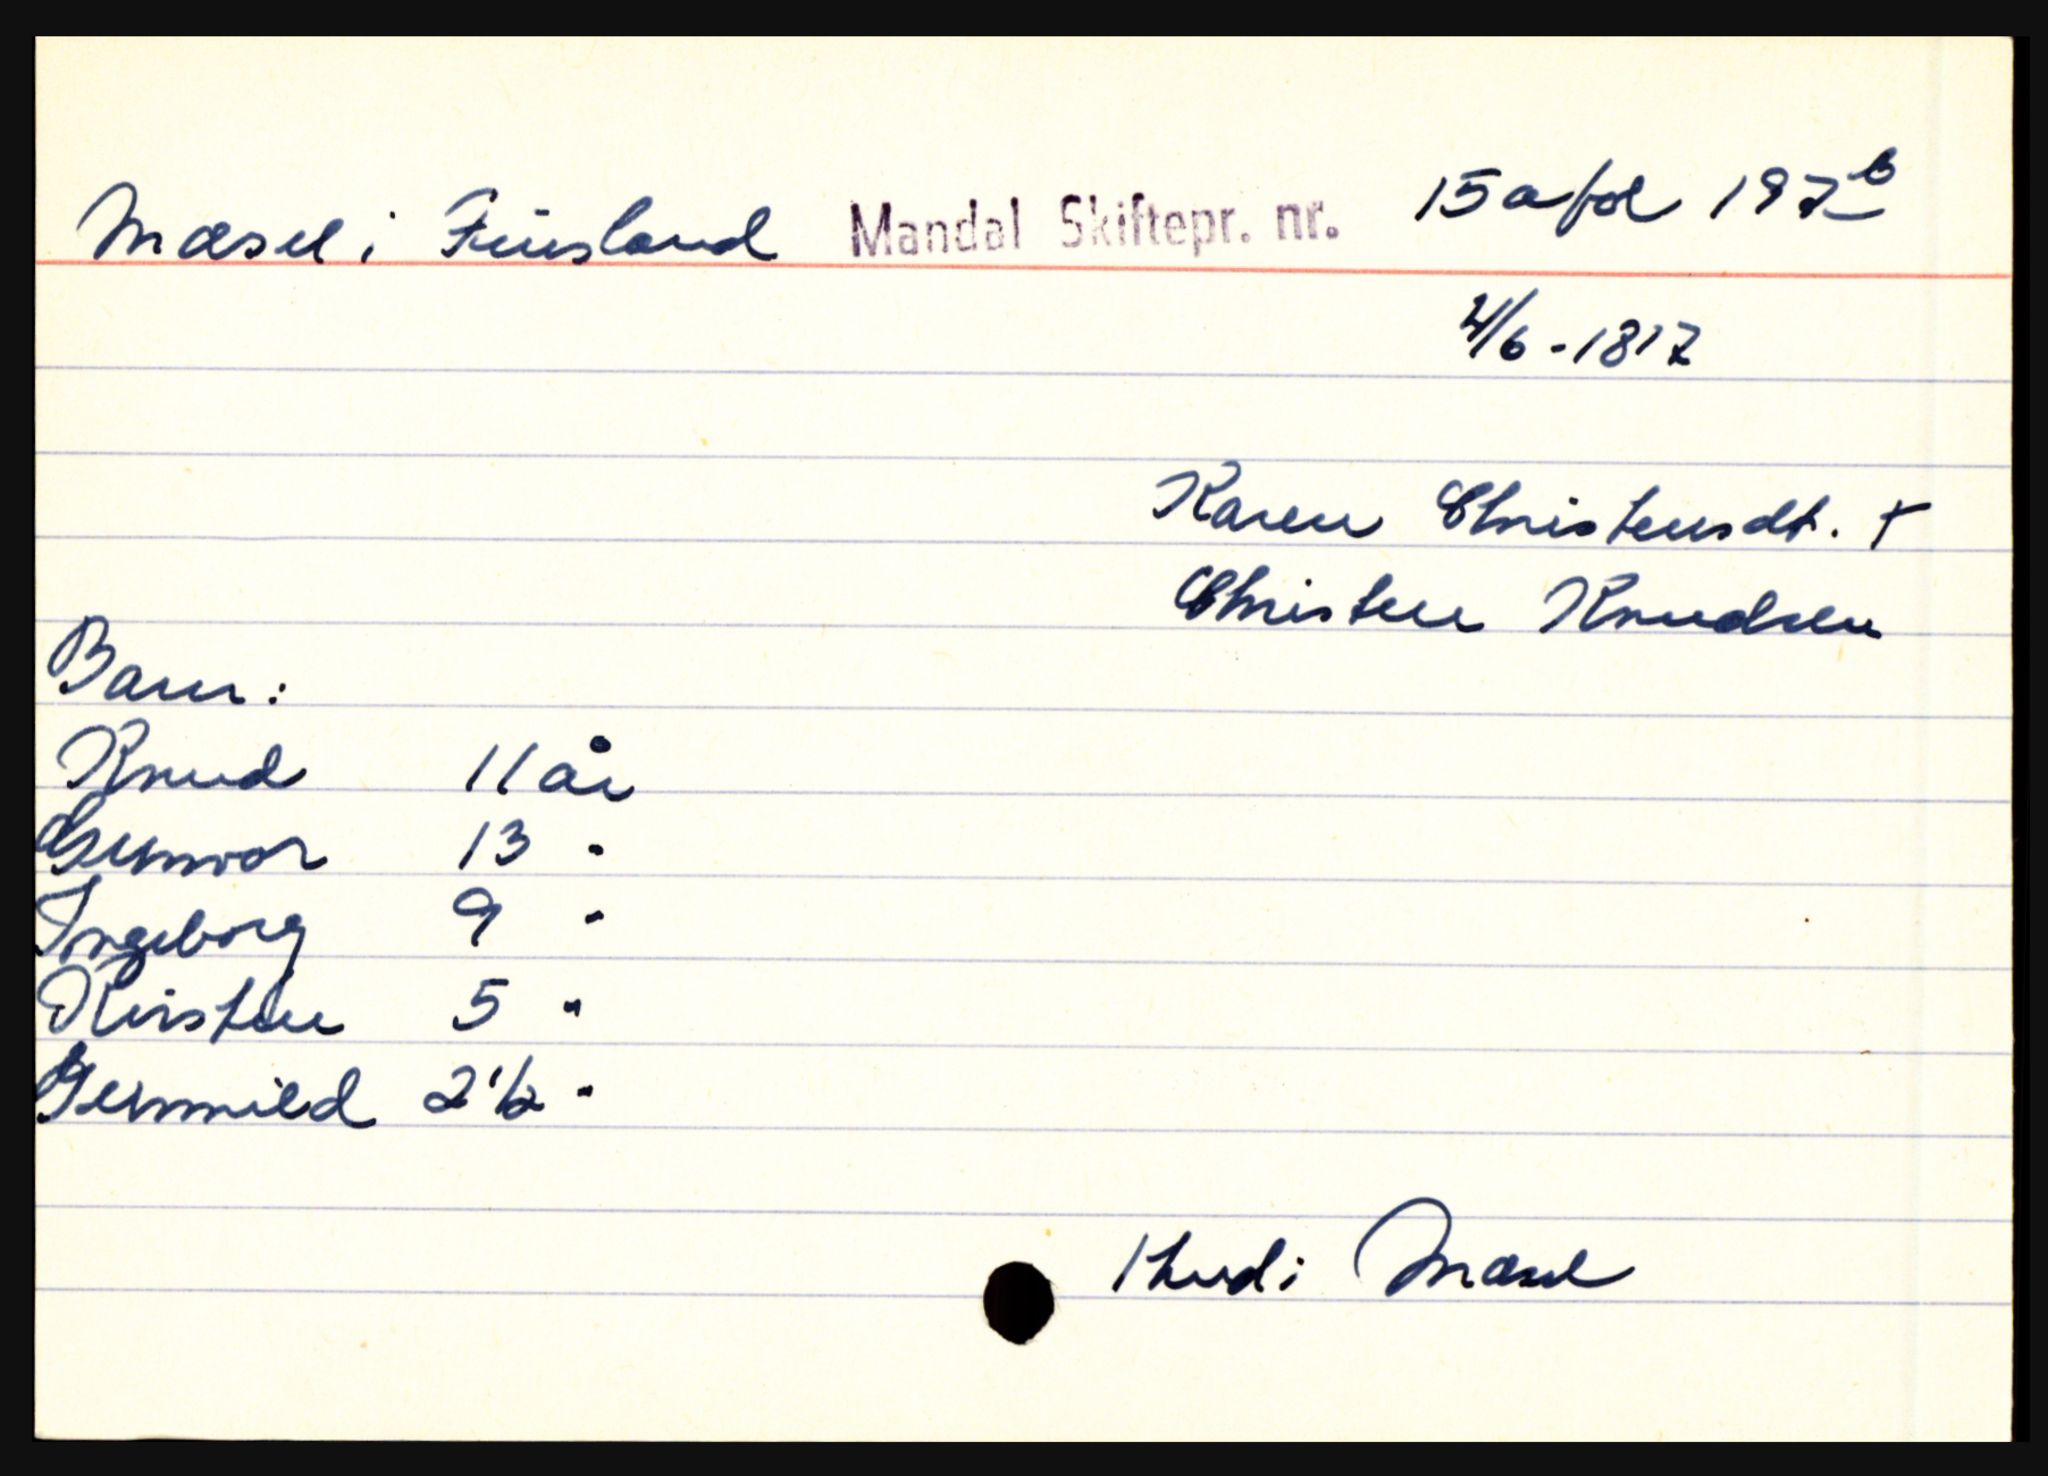 Mæsel i Finsland Mandal Skiftepr. nr. 15 a fol 197b
4/6-1817
Karen Christensdt. +
Christen Knudsen
Barn:
Knud 11 år
Gunvor 13 "
Ingeborg 9 "
Kirsten 5 "
Gunnild 2 1/2 "
1 hud i Mæsel